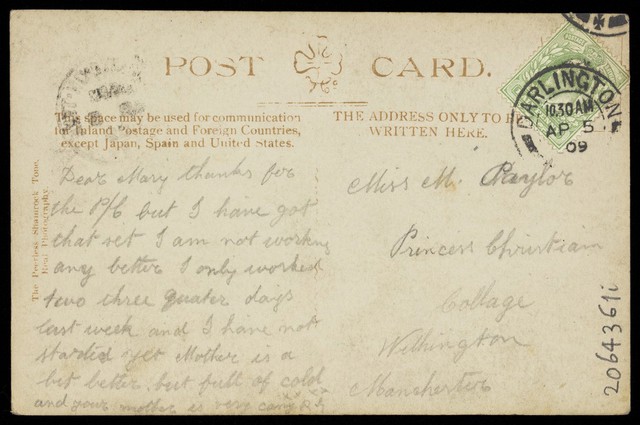 POST CARD.
This space may be used for communication
for Inland Postage and Foreign Countries,
except Japan, Spain and United States.
THE ADDRESS ONLY TO BE
WRITTEN HERE.
DARLINGTON
10.30 AM
AP 5
09
The Peerless-Shamrock Tone.
Real Photography.
Dear Mary thanks for
the P/C but I have got
that set I am not working
any better I only worked
two three quater days
last week and I have not
started yet Mother is a
bit better but full of cold
and your mother is very
Miss M.
Princess Christiain
Collage
Withington
Manchester
2064361i